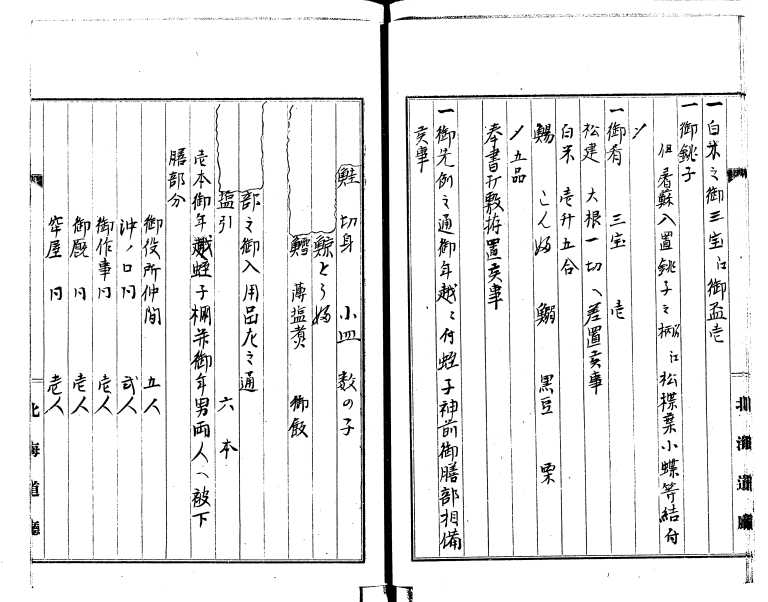 一白米之御三宝江御盃壱
一御銚子
但屠蘇入置銚子之柄江松楪葉小蝶等結付
〆
一御肴 三宝 壱
松建 大根一切ヘ差置亥事
白米 壱升五合
鯣 こんぶ 鰯 黒豆 栗
〆五品
奉書打敷拵置亥事
一御先例之通御年越ニ付蛭子神前御膳部相備
亥事
北海道廳
鮭 切身 小皿 数の子
鯨とうふ
鱈 薄塩煮 御飯
部之御入用品左之通
塩引 六本
壱本御年越蛭子棚并御年男両人ヘ被下
膳部分
御役所仲間 五人
沖ノ口同 弐人
御作事同 壱人
御厩 同 壱人
牢屋 同 壱人
北海道廳